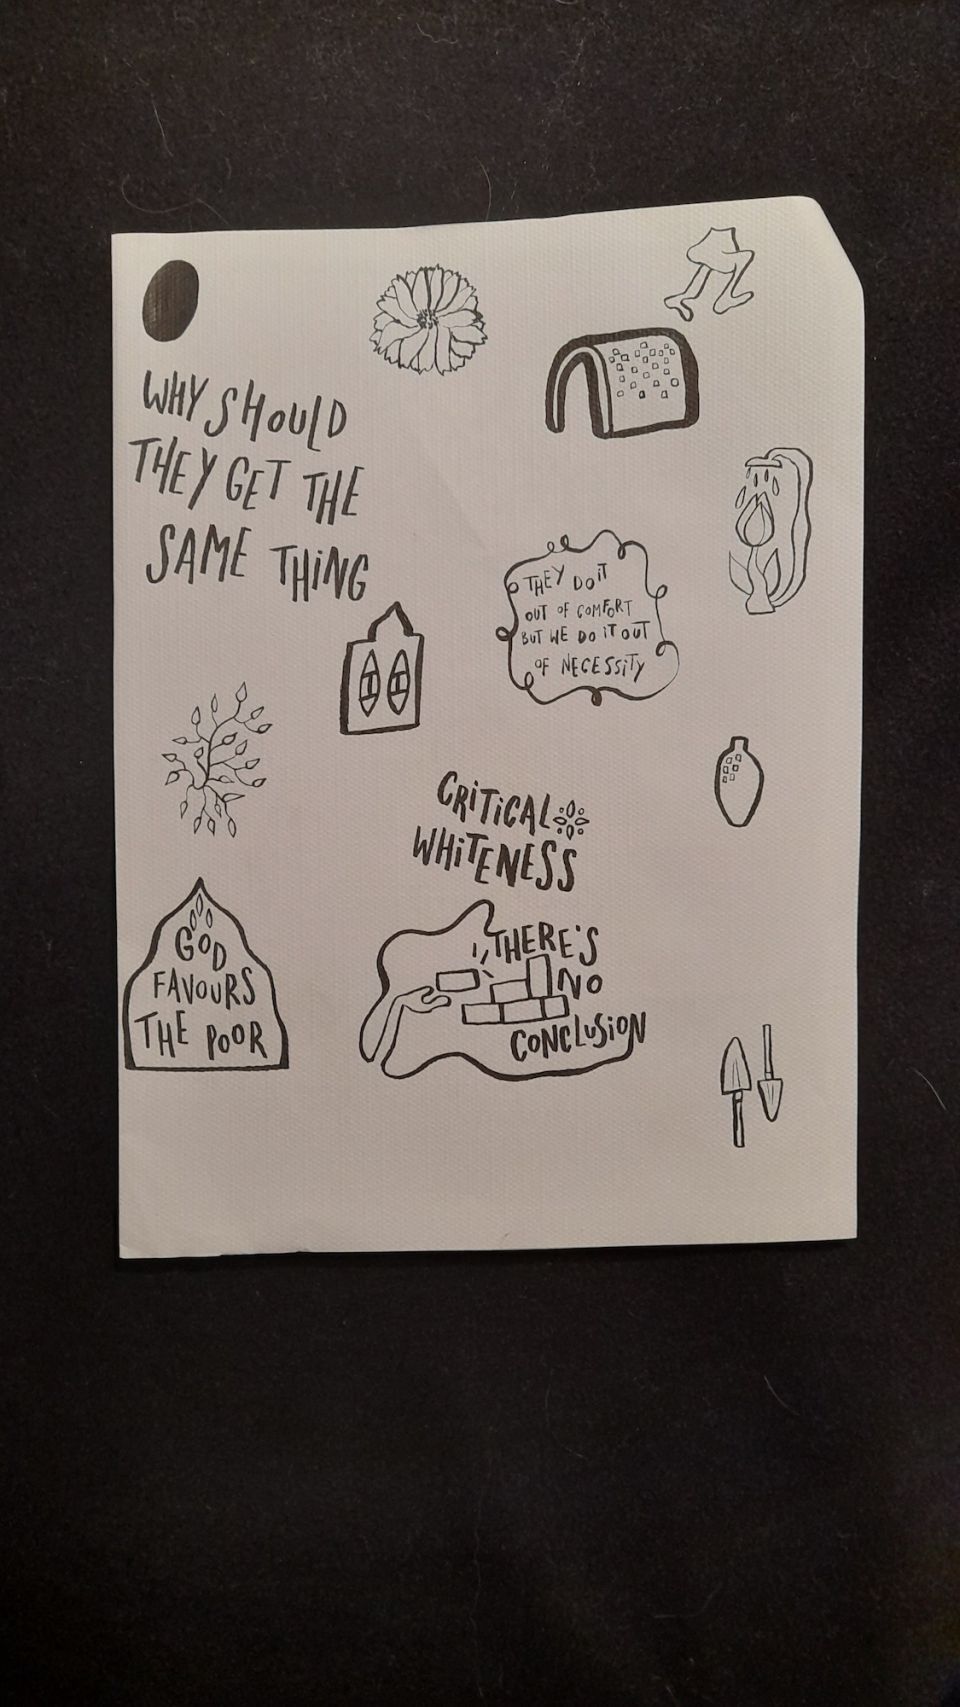 WHY SHOULD
THEY GET THE
SAME THING
THEY DO IT
OUT OF COMFORT
BUT WE DO IT OUT
OF NECESSITY
CRITICAL
WHITENESS
GOD
FAVOURS
THE POOR
THERE'S
NO
CONCLUSION